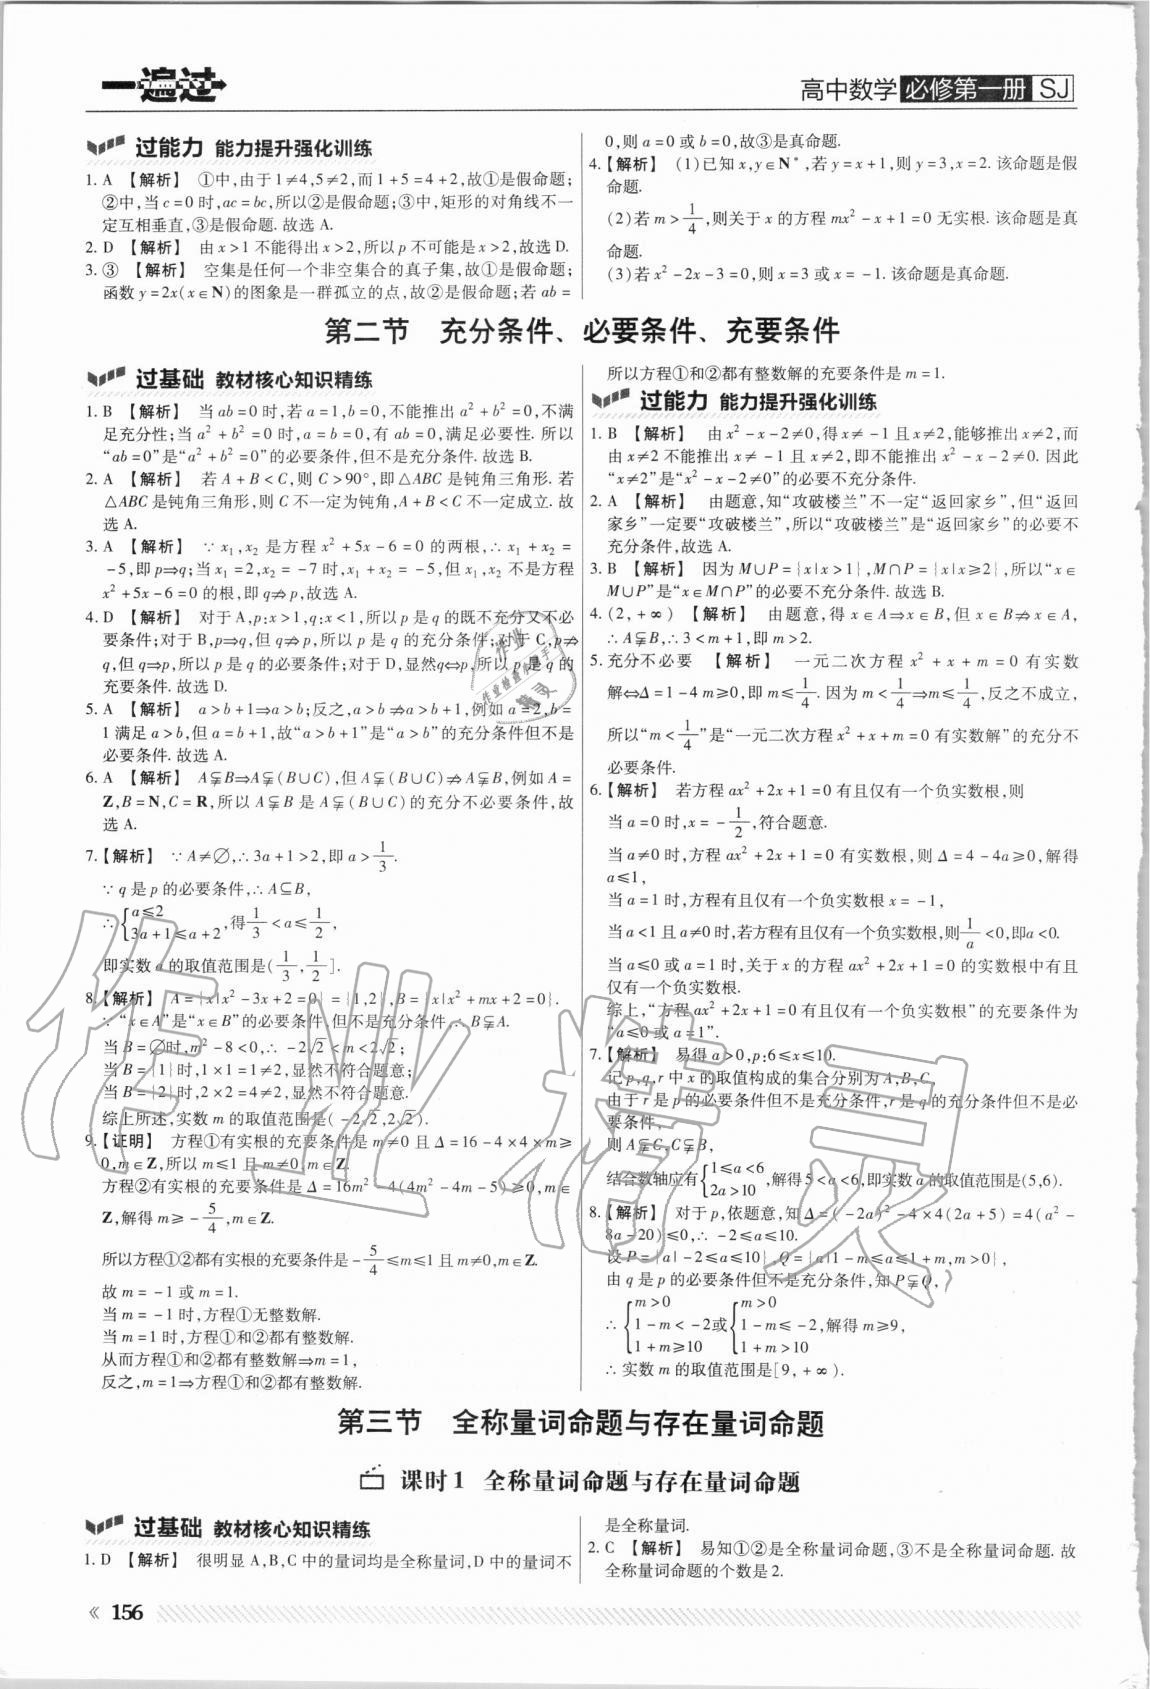 一遍过
高中数学 必修第一册 SJ
过能力 能力提升强化训练
1. A 【解析】 ①中,由于1≠4,5≠2,而1+5=4+2,故①是假命题;
②中,当c=0时,ac=bc,所以②是假命题;③中,矩形的对角线不一
定互相垂直,③是假命题.故选A.
2. D 【解析】 由x>1不能得出x>2,所以p不可能是x>2,故选D.
3. ③ 【解析】 空集是任何一个非空集合的真子集,故①是假命题;
函数y=2x(x∈N)的图象是一群孤立的点,故②是假命题;若ab=
0,则a=0或b=0,故③是真命题.
4.【解析】 (1)已知x,y∈N*,若y=x+1,则y=3,x=2.该命题是假
命题.
(2)若m>1/4,则关于x的方程mx²-x+1=0无实根.该命题是真
命题.
(3)若x²-2x-3=0,则x=3或x=-1.该命题是真命题.
第二节 充分条件、必要条件、充要条件
过基础 教材核心知识精练
1. B 【解析】 当ab=0时,若a=1,b=0,不能推出a²+b²=0,不满
足充分性;当a²+b²=0时,a=b=0,有ab=0,满足必要性.所以
“ab=0”是“a²+b²=0”的必要条件,但不是充分条件.故选B.
2. A 【解析】 若A+B<C,则C>90°,即△ABC是钝角三角形.若
△ABC是钝角三角形,则C不一定为钝角,A+B<C不一定成立.故
选A.
3. A 【解析】 ∵x₁,x₂是方程x²+5x-6=0的两根,∴x₁+x₂=
-5,即p⇒q;当x₁=2,x₂=-7时,x₁+x₂=-5,但x₁,x₂不是方程
x²+5x-6=0的根,即q⇏p,故选A.
4. D 【解析】 对于A,p:x>1,q:x<1,所以p是q的既不充分又不必
要条件;对于B,p⇒q,但q⇏p,所以p是q的充分条件;对于C,p⇏
q,但q⇒p,所以p是q的必要条件;对于D,显然q⇔p,所以p是q的
充要条件.故选D.
5. A 【解析】 a>b+1⇒a>b;反之,a>b⇏a>b+1,例如a=2,b=
1满足a>b,但a=b+1,故“a>b+1”是“a>b”的充分条件但不是
必要条件.故选A.
6. A 【解析】 A⫋B⇒A⫋(B∪C),但A⫋(B∪C)⇏A⫋B,例如A=
Z,B=N,C=R,所以A⫋B是A⫋(B∪C)的充分不必要条件,故
选A.
7.【解析】 ∵A≠∅,∴3a+1>2,即a>1/3.
∵q是p的必要条件,∴A⊆B,
∴{a≤2
3a+1≤a+2,得1/3<a≤1/2,
即实数a的取值范围是(1/3,1/2].
8.【解析】 A={x|x²-3x+2=0}={1,2},B={x|x²+mx+2=0}.
∵“x∈A”是“x∈B”的必要条件,但不是充分条件,∴B⫋A.
当B=∅时,m²-8<0,∴-2√2<m<2√2;
当B={1}时,1×1=1≠2,显然不符合题意;
当B={2}时,2×2=4≠2,显然不符合题意.
综上所述,实数m的取值范围是(-2√2,2√2).
9.【证明】 方程①有实根的充要条件是m≠0且Δ=16-4×4×m≥
0,m∈Z,所以m≤1且m≠0,m∈Z.
方程②有实根的充要条件是Δ=16m²-4(4m²-4m-5)≥0,m∈
Z,解得m≥-5/4,m∈Z.
所以方程①②都有实根的充要条件是-5/4≤m≤1且m≠0,m∈Z.
故m=-1或m=1.
当m=-1时,方程①无整数解.
当m=1时,方程①和②都有整数解.
从而方程①和②都有整数解⇒m=1,
反之,m=1⇒方程①和②都有整数解.
所以方程①和②都有整数解的充要条件是m=1.
过能力 能力提升强化训练
1. B 【解析】 由x²-x-2≠0,得x≠-1且x≠2,能够推出x≠2,而
由x≠2不能推出x≠-1且x≠2,即不能推出x²-x-2≠0.因此
“x≠2”是“x²-x-2≠0”的必要不充分条件.
2. A 【解析】 由题意,知“攻破楼兰”不一定“返回家乡”,但“返回
家乡”一定要“攻破楼兰”,所以“攻破楼兰”是“返回家乡”的必要不
充分条件,故选A.
3. B 【解析】 因为M∪P={x|x>1},M∩P={x|x≥2},所以“x∈
M∪P”是“x∈M∩P”的必要不充分条件.故选B.
4. (2,+∞) 【解析】 由题意,得x∈A⇒x∈B,但x∈B⇏x∈A,
∴A⫋B,∴3<m+1,即m>2.
5. 充分不必要 【解析】 一元二次方程x²+x+m=0有实数
解⇔Δ=1-4m≥0,即m≤1/4.因为m<1/4⇒m≤1/4,反之不成立,
所以“m<1/4”是“一元二次方程x²+x+m=0有实数解”的充分不
必要条件.
6.【解析】 若方程ax²+2x+1=0有且仅有一个负实数根,则
当a=0时,x=-1/2,符合题意.
当a≠0时,方程ax²+2x+1=0有实数根,则Δ=4-4a≥0,解得
a≤1,
当a=1时,方程有且仅有一个负实数根x=-1,
当a<1且a≠0时,若方程有且仅有一个负实数根,则1/a<0,即a<0.
当a≤0或a=1时,关于x的方程ax²+2x+1=0的实数根中有且
仅有一个负实数根.
综上,“方程ax²+2x+1=0有且仅有一个负实数根”的充要条件为
“a≤0或a=1”.
7.【解析】 易得a>0,p:6≤x≤10.
记p,q,r中x的取值构成的集合分别为A,B,C,
由于r是p的必要条件但不是充分条件,r是q的充分条件但不是必
要条件,
则A⫋C,C⫋B,
结合数轴应有{1≤a<6
2a>10,解得5<a<6,即实数a的取值范围是(5,6).
8.【解析】 对于p,依题意,知Δ=(-2a)²-4×4(2a+5)=4(a²-
8a-20)≤0,∴-2≤a≤10.
设P={a|-2≤a≤10},Q={a|1-m≤a≤1+m,m>0},
由q是p的必要条件但不是充分条件,知P⫋Q,
∴{m>0
1-m<-2
1+m≥10
或{m>0
1-m≤-2,
1+m>10
解得m≥9,
∴实数m的取值范围是[9,+∞).
第三节 全称量词命题与存在量词命题
课时1 全称量词命题与存在量词命题
过基础 教材核心知识精练
1. D 【解析】 很明显A,B,C中的量词均是全称量词,D中的量词不
是全称量词.
2. C 【解析】 易知①②是全称量词命题,③不是全称量词命题.故
全称量词命题的个数是2.
« 156
作业精灵